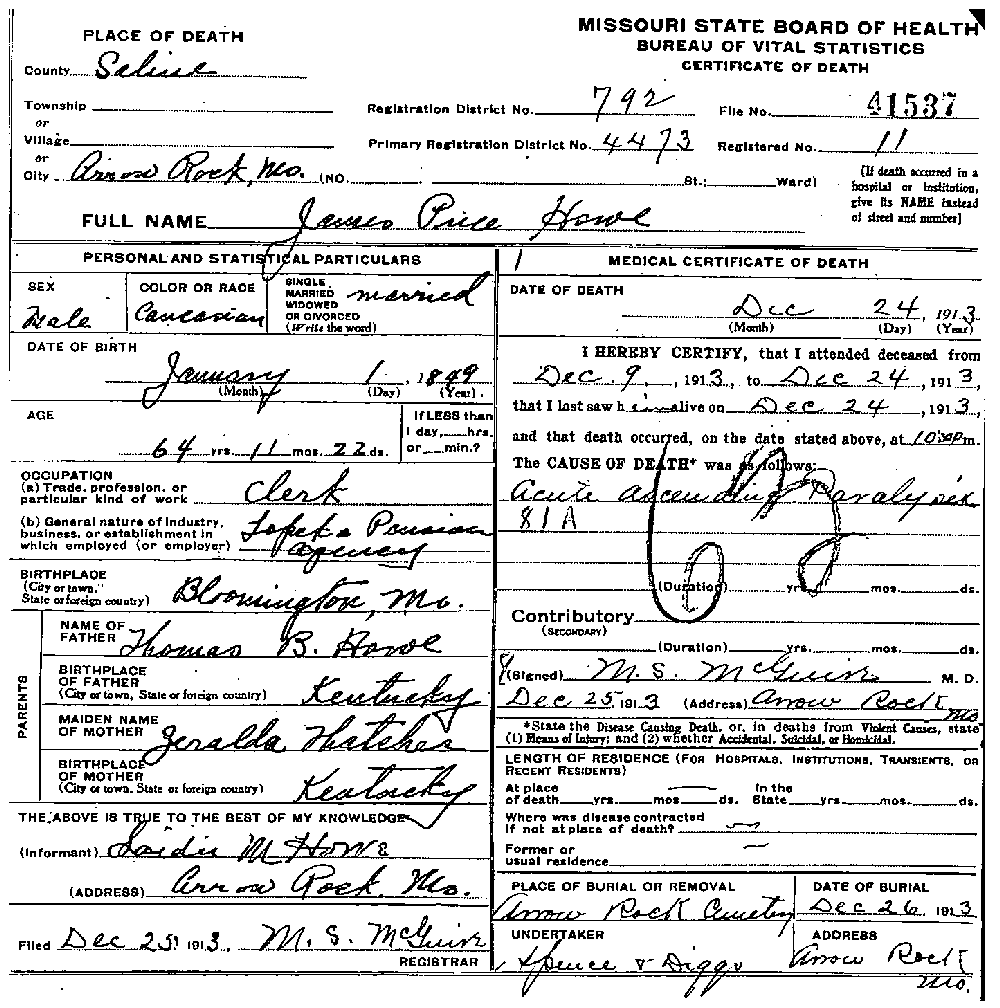 MISSOURI STATE BOARD OF HEALTH
BUREAU OF VITAL STATISTICS
CERTIFICATE OF DEATH
PLACE OF DEATH
County Saline
Township
or
Village
or
City Arrow Rock, Mo. (NO. St.; Ward)
Registration District No. 792 File No. 41537
Primary Registration District No. 4473 Registered No. 11
[If death occurred in a
hospital or institution,
give its NAME instead
of street and number]
FULL NAME James Price Howe
PERSONAL AND STATISTICAL PARTICULARS
SEX
Male
COLOR OR RACE
Caucasian
SINGLE
MARRIED
WIDOWED
OR DIVORCED
(Write the word)
married
DATE OF BIRTH
January 1, 1849
(Month) (Day) (Year).
AGE
64 yrs. 11 mos. 22 ds.
If LESS than
1 day, hrs.
or min.?
OCCUPATION
(a) Trade, profession, or
particular kind of work Clerk
(b) General nature of industry,
business, or establishment in
which employed (or employer) Topeka Pension
Agency
BIRTHPLACE
(City or town,
State or foreign country) Bloomington, Mo.
PARENTS
NAME OF
FATHER Thomas B. Howe
BIRTHPLACE
OF FATHER
(City or town, State or foreign country) Kentucky
MAIDEN NAME
OF MOTHER Jeralda Thatcher
BIRTHPLACE
OF MOTHER
(City or town, State or foreign country) Kentucky
THE ABOVE IS TRUE TO THE BEST OF MY KNOWLEDGE
(Informant) Saidie M Howe
(ADDRESS) Arrow Rock Mo.
Filed Dec 25, 1913, M. S. McGuire
REGISTRAR
MEDICAL CERTIFICATE OF DEATH
DATE OF DEATH
Dec 24, 1913
(Month) (Day) (Year)
I HEREBY CERTIFY, that I attended deceased from
Dec. 9, 1913, to Dec 24, 1913,
that I last saw him alive on Dec 24, 1913,
and that death occurred, on the date stated above, at m.
The CAUSE OF DEATH* was as follows:
Acute ascending Paralysis
81A
(Duration) yrs. mos. ds.
Contributory
(SECONDARY)
(Duration) yrs. mos. ds.
(Signed) M. S. McGuire M. D.
Dec 25 1913 (Address) Arrow Rock
Mo
*State the Disease Causing Death, or, in deaths from Violent Causes, state
(1) Means of Injury; and (2) whether Accidental, Suicidal, or Homicidal.
LENGTH OF RESIDENCE (FOR HOSPITALS, INSTITUTIONS, TRANSIENTS, OR
RECENT RESIDENTS)
At place
of death yrs. mos. ds.
In the
State yrs. mos. ds.
Where was disease contracted
if not at place of death?
Former or
usual residence
PLACE OF BURIAL OR REMOVAL
Arrow Rock Cemetery
DATE OF BURIAL
Dec 26 1913
UNDERTAKER
Spence & Diggs
ADDRESS
Arrow Rock
Mo.